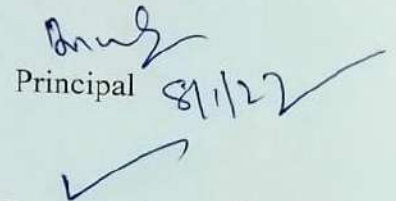 Principal 8/1/22